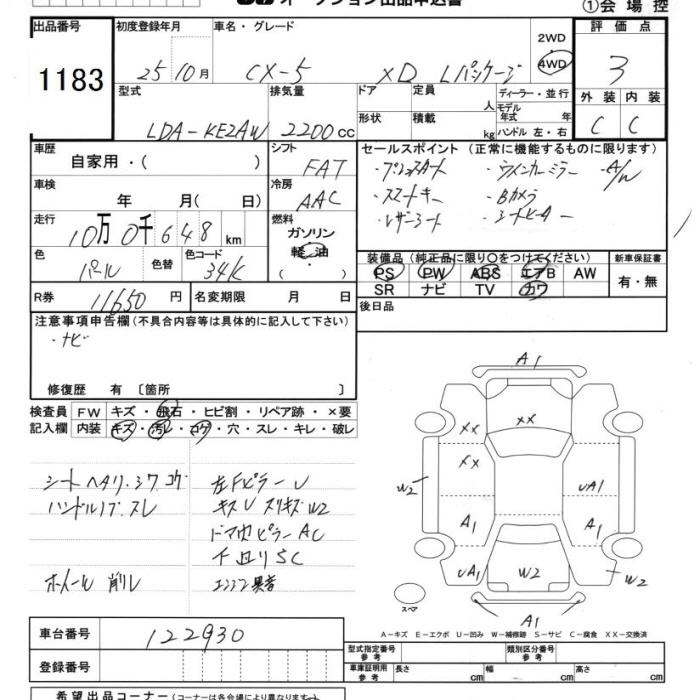 オークション出品申込書
①会場控
出品番号 初度登録年月 車名・グレード 2WD 評価点
1183 25年10月 CX-5 XD Lパッケージ 4WD 3
型式 排気量 ドア 定員 人 ディーラー・並行 外装 内装
LDA-KE2AW 2200cc 形状 積載 kg モデル年式 年 ハンドル 左・右 C C
車歴 自家用・( ) シフト FAT セールスポイント (正常に機能するものに限ります)
・プッシュスタート ・ウインカーミラー ・A/W
車検 年 月( 日) 冷房 AAC ・スマートキー ・Bカメラ
走行 10万0千648km 燃料 ガソリン 軽油 ( ) ・レザーシート ・シートヒーター
色 パール 色替 色コード 34K
装備品 (純正品に限り○をつけてください) 新車保証書
PS PW ABS エアB AW 有・無
SR ナビ TV カワ
R券 11650円 名変期限 月 日 後日品
注意事項申告欄 (不具合内容等は具体的に記入して下さい)
・ナビ
修復歴 有 〔箇所 〕
検査員 FW キズ・飛石・ヒビ割・リペア跡・×要
記入欄 内装 キズ・汚レ・コゲ・穴・スレ・キレ・破レ
シートヘタリ・シワ・コゲ 左FピラーU
ハンドルノブスレ キズU スリキズW2
ドア内ピラーAC
下回りSC
ホイール削レ エンジン異音
A1
XX
XX
XX
W2
UA1
A1
A1
UA1
W2
W2
A1
スペア
A-キズ E-エクボ U-凹み W-補修跡 S-サビ C-腐食 XX-交換済
車台番号 122930 型式指定番号 参考 類別区分番号 参考
登録番号 車庫証明用 参考 長さ cm 幅 cm 高さ cm
希望出品コーナー